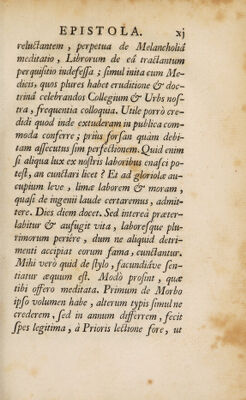 EPISTOLA. xj
reluctantem, perpetua de Melancholiâ
meditatio, Librorum de eâ tractantum
perquisitio indefessa; simul inita cum Me-
dicis, quos plures habet eruditione & doc-
trinâ celebrandos Collegium & Urbs nos-
tra, frequentia colloquia. Utile porrò cre-
didi quod inde extuderam in publica com-
moda conferre; priùs forsan quàm debi-
tam assecutus sim perfectionem. Quid enim
si aliqua lux ex nostris laboribus enasci po-
test, an cunctari licet? Et ad gloriolæ au-
cupium leve, limæ laborem & moram,
quasi de ingenii laude certaremus, admit-
tere. Dies diem docet. Sed intereà præter-
labitur & aufugit vita, laboresque plu-
rimorum periêre, dum ne aliquid detri-
menti accipiat eorum fama, cunctantur.
Mihi verò quid de stylo, facundiâve sen-
tiatur æquum est. Modò prosint, quæ
tibi offero meditata. Primum de Morbo
ipso volumen habe, alterum typis simul ne
crederem, sed in annum differrem, fecit
spes legitima, à Prioris lectione fore, ut